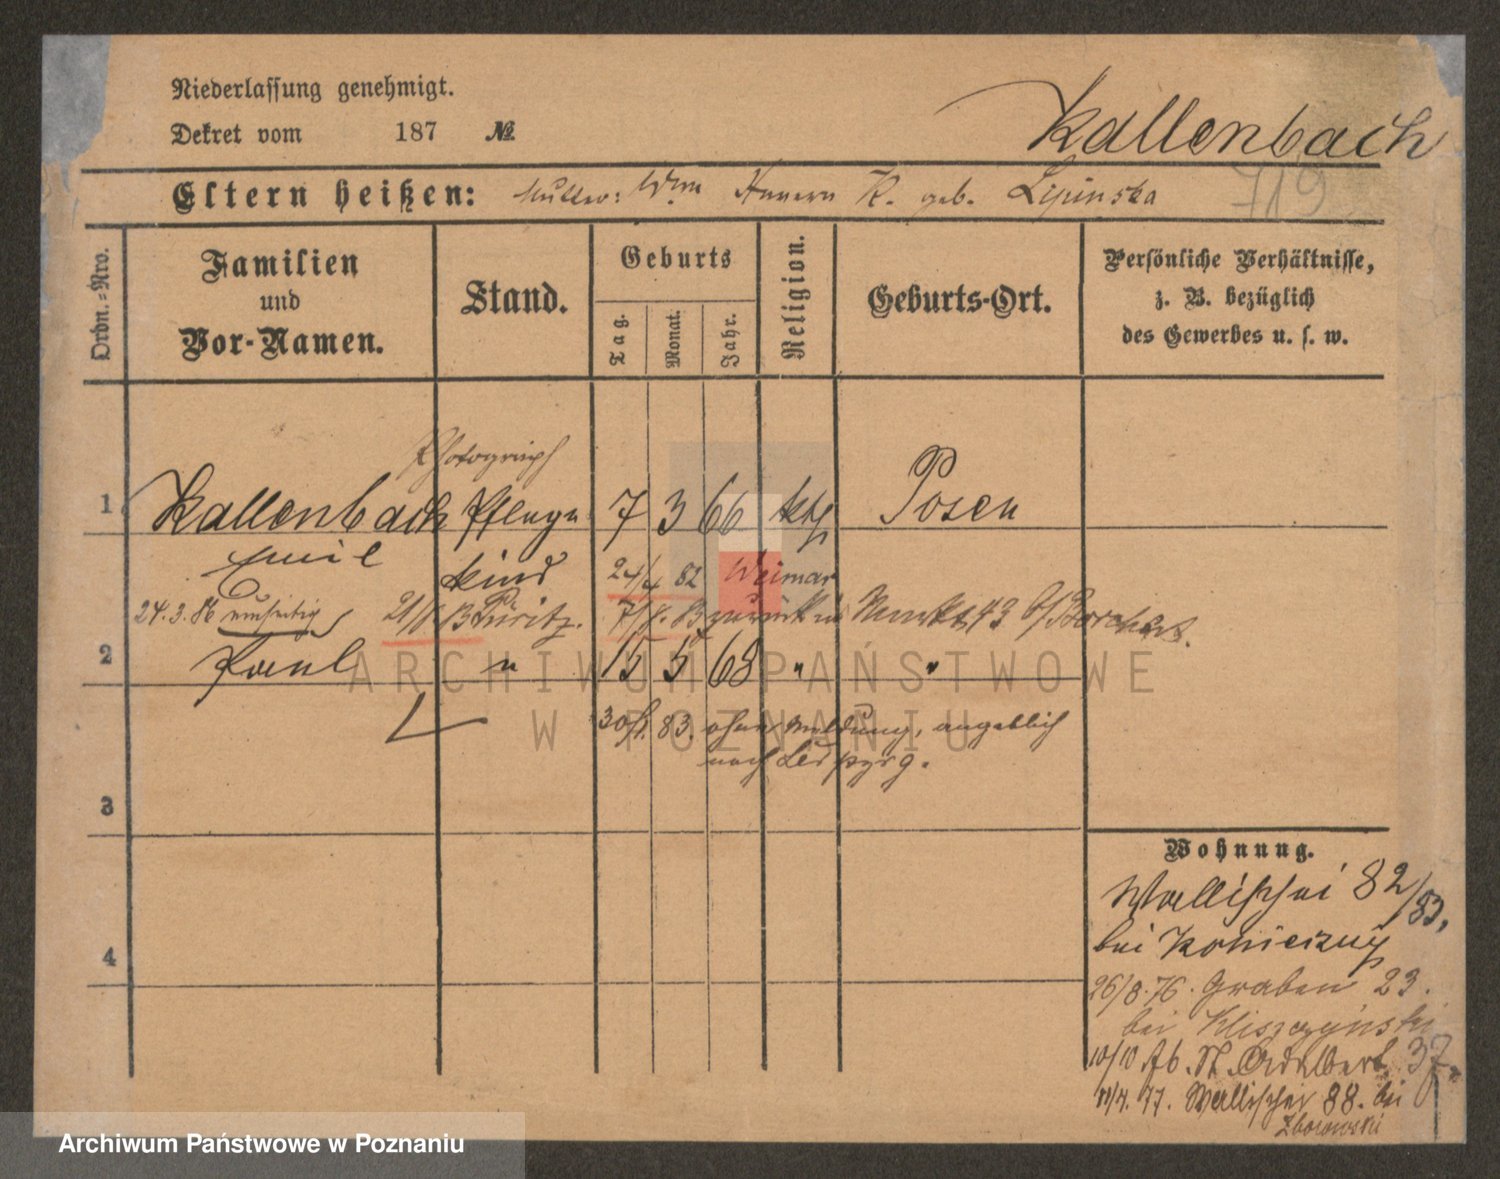 Niederlassung genehmigt.
Dekret vom 187 №
Kallenbach
Eltern heißen: Mutter: Wwe K. geb. Lipinska
719
Ordn.-Nro.
Familien
und
Vor-Namen.
Stand.
Geburts
Tag.
Monat.
Jahr.
Religion.
Geburts-Ort.
Persönliche Verhältnisse,
z. B. bezüglich
des Gewerbes u. s. w.
Photograph
1 Kallenbach Pflege 7 3 66 kth Posen
Emil kind 24/4 82 Weimar
24.3.86 21/6 83 7/8. 83 zurück 43 b/
2 Paul " 15 5 68 " "
83. ohne Meldung, angeblich
nach Leipzig.
3
4
Wohnung.
Wallischei 82/83,
bei Konieczny
26/8.76. Graben 23.
bei Kliszczynski
10/10 76. St. Adalbert 37.
77. Wallischei 88. bei
Zborowski
ARCHIWUM PAŃSTWOWE
W POZNANIU
Archiwum Państwowe w Poznaniu